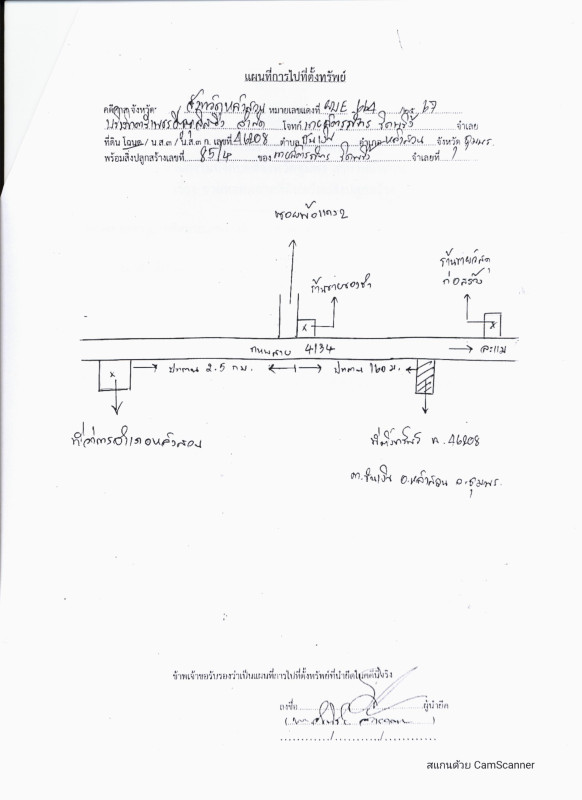 แผนที่การไปที่ตั้งทรัพย์
คดีศาล จังหวัด จังหวัดหลังสวน หมายเลขแดงที่
จำกัด โจทก์ จำเลย
ที่ดิน โฉนด / น.ส.๓ / น.ส.๓ ก. เลขที่ 46208 ตำบล ขันเงิน อำเภอ หลังสวน จังหวัด ชุมพร
พร้อมสิ่งปลูกสร้างเลขที่ 85/4 ของ จำเลยที่
ซอยพ่อแดง 2
ร้านขายวัสดุ
ก่อสร้าง
ร้านขายของชำ
x
x
ถนนสาย 4134 → ละแม
x
→ ประมาณ 2.5 กม. ← → ประมาณ 160 ม. ←
ที่ว่าการอำเภอหลังสวน
ที่ตั้งทรัพย์ ฉ. 46208
ต.ขันเงิน อ.หลังสวน จ.ชุมพร
ข้าพเจ้าขอรับรองว่าเป็นแผนที่การไปที่ตั้งทรัพย์ที่นำยึดในคดีนี้จริง
ลงชื่อ ผู้นำยึด
สแกนด้วย CamScanner